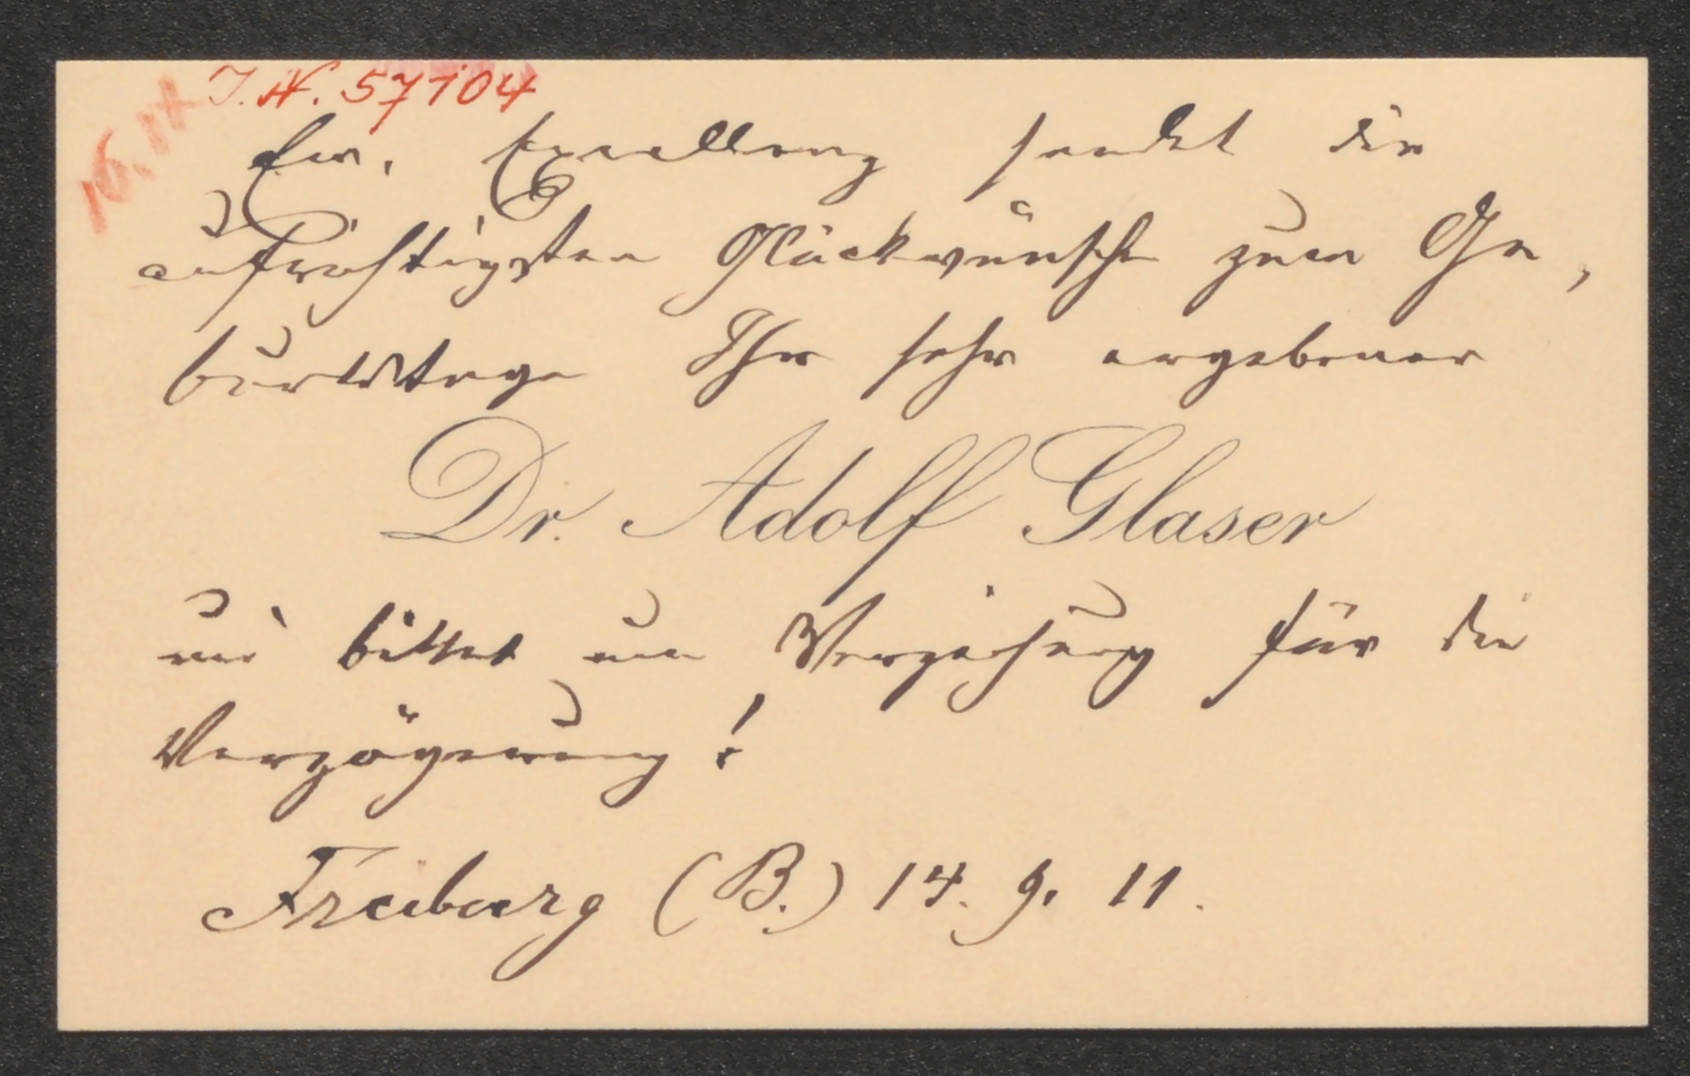 16. IX
J. N. 57104
Ew. Excellenz sendet die
aufrichtigsten Glückwünsche zum Ge,
burtstage Ihr sehr ergebener
Dr. Adolf Glaser
und bittet um Verzeihung für die
Verzögerung!
Freiburg (B.) 14. 9. 11.